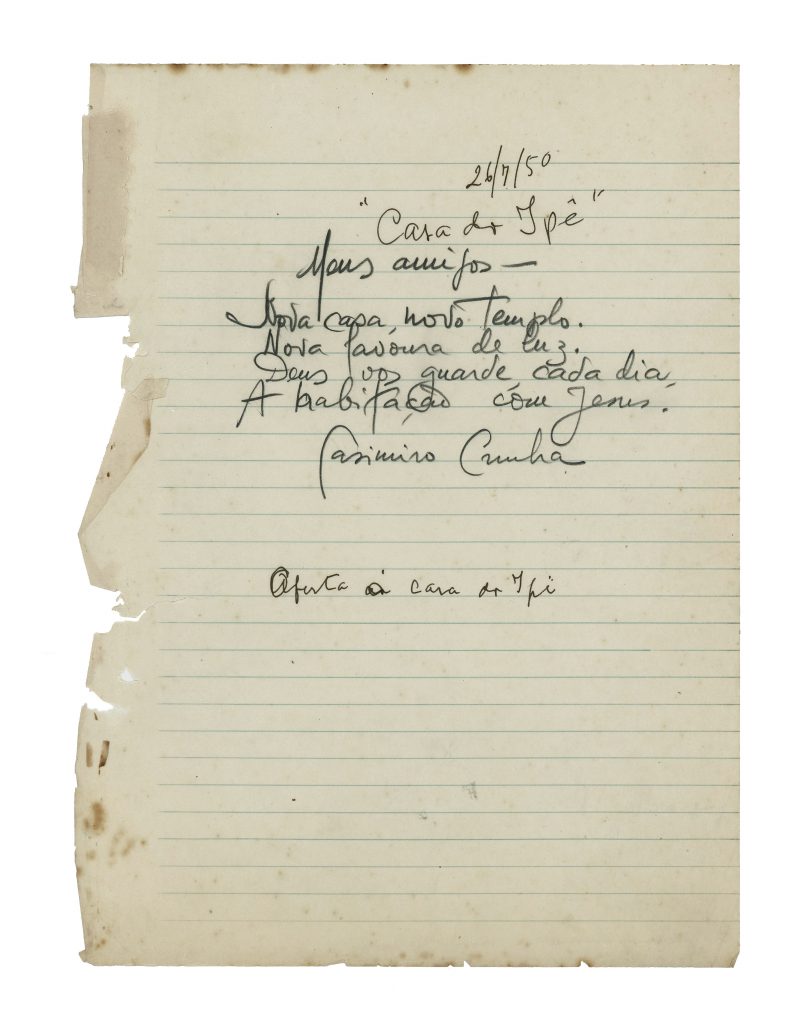 26/7/50
"Casa do Ipê"
Meus amigos —
Nova casa, novo templo.
Nova lavoura de luz.
Deus vos guarde cada dia,
A habitação com Jesus.
Casimiro Cunha
Oferta à casa do Ipê